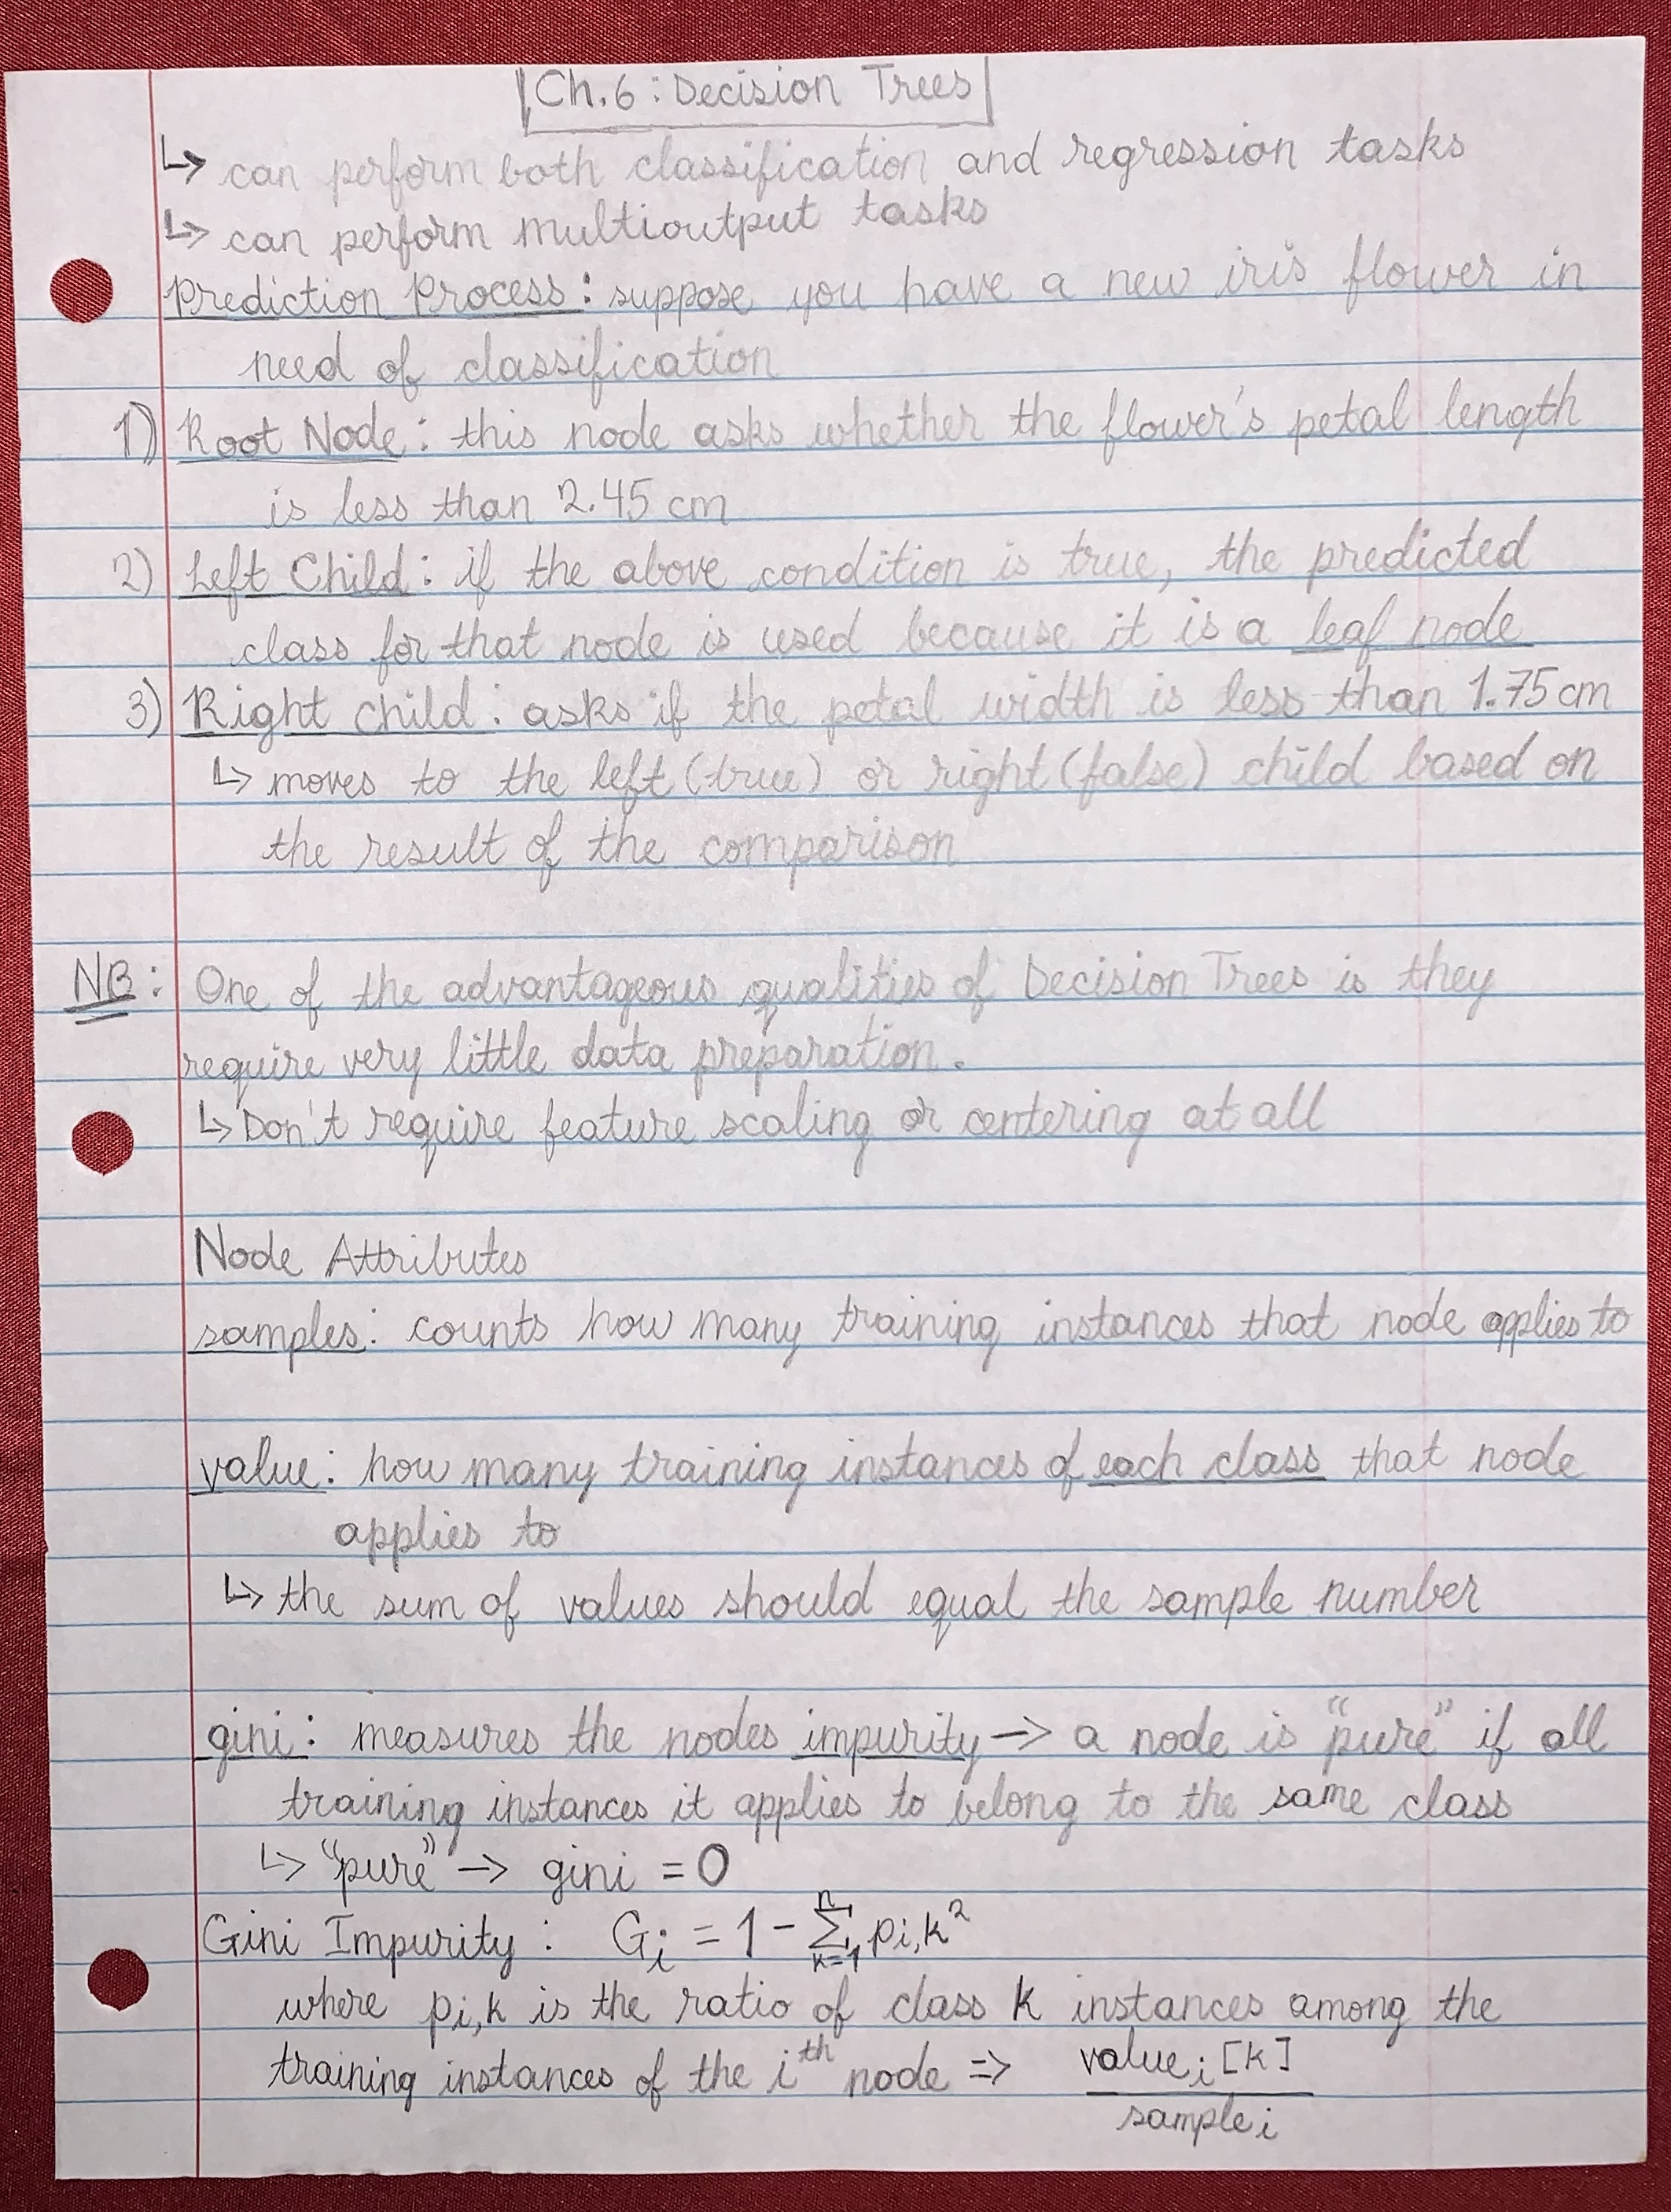 Ch. 6 : Decision Trees
↳ can perform both classification and regression tasks
↳ can perform multioutput tasks
Prediction Process : suppose you have a new iris flower in
need of classification
1) Root Node : this node asks whether the flower's petal length
is less than 2.45 cm
2) Left Child : if the above condition is true, the predicted
class for that node is used because it is a leaf node
3) Right child : asks if the petal width is less than 1.75 cm
↳ moves to the left (true) or right (false) child based on
the result of the comparison
NB : One of the advantageous qualities of Decision Trees is they
require very little data preparation.
↳ Don't require feature scaling or centering at all
Node Attributes
samples : counts how many training instances that node applies to
value : how many training instances of each class that node
applies to
↳ the sum of values should equal the sample number
gini : measures the nodes impurity → a node is "pure" if all
training instances it applies to belong to the same class
↳ "pure" → gini = 0
Gini Impurity : Gᵢ = 1 - Σₖ₌₁ⁿ pᵢ,ₖ²
where pᵢ,ₖ is the ratio of class k instances among the
training instances of the iᵗʰ node ⇒ valueᵢ [k]
sampleᵢ